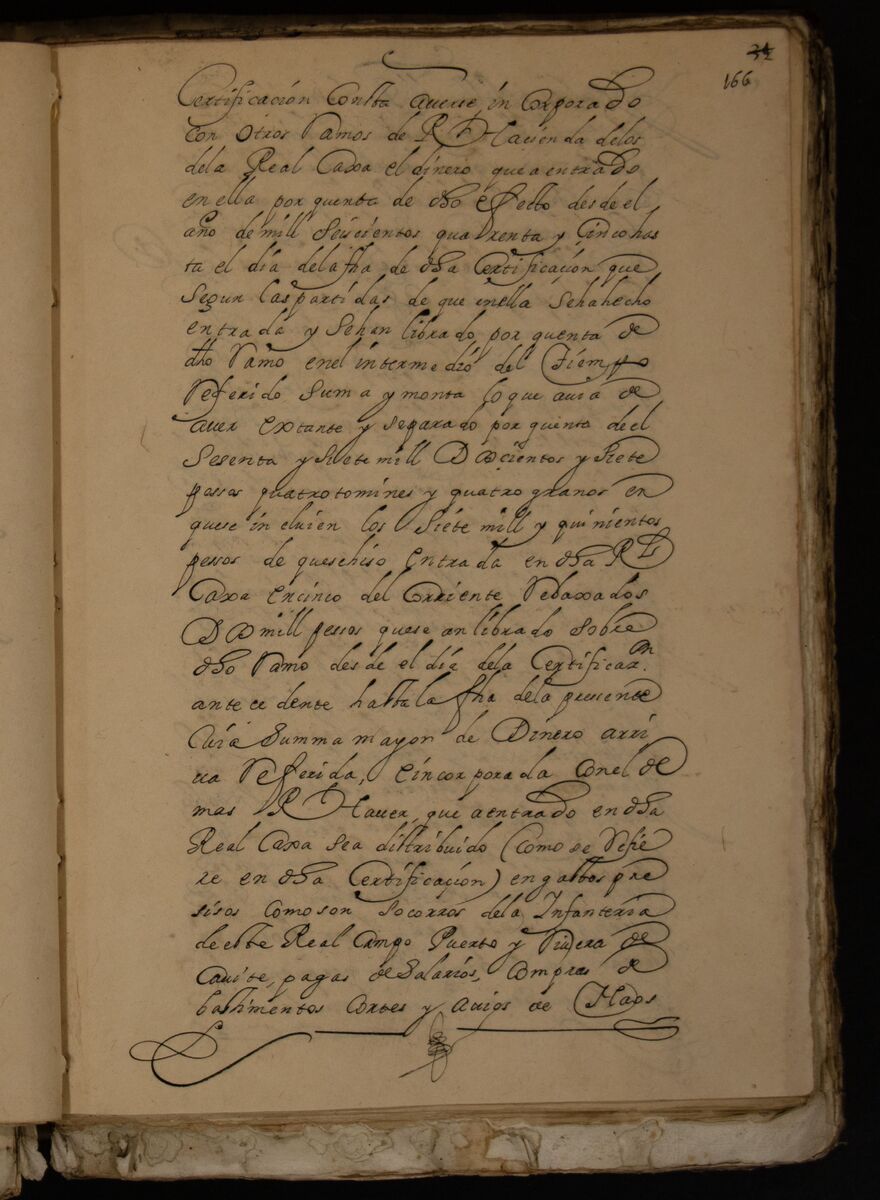 34
166
Certificación Consta averse, in corporado
con otros Ramos de Rl Hacienda delos
dela Real Caxa el dinero que a entrado
en ella por quenta de dho efecto desde el
año de mill Seiscientos quarenta y Cinco has
ta el día dela fha de dha Certificaçión que
Segun las partidas de que enella Sehahecho
entrada y Sehan librado por quenta de
dho Ramo enel intermedio del Tiempo
Referido Suma y monta lo que avia de
aver Extante y separado por quenta de el
Sesenta y siete mill Doçientos y Siete
pessos quatro tomines y quatro granos en
quese incluien los Siete mill y quinientos
pessos de quese hiso entrada en dha Rl
Caxa en cinco del Corriente Rebaxados
Dos mill pessos quese an librado sobre
dho Ramo desde el día dela Certificaon.
ante ce dente hasta la fha dela presente
Cuia Summa mayor de Dinero arri
va Referida, e incorporada con el de
mas Rl Haver, que a entrado en dha
Real Caxa sea distribuido (como se Refie
re en dha Certificaçión) en gastos pre
sisos como son socorros dela Infanteria
de este Real Campo Puerto y Rivera de
Cavite, pagas de Salarios, Compras de
bastimentos Cortes y avios de Naos